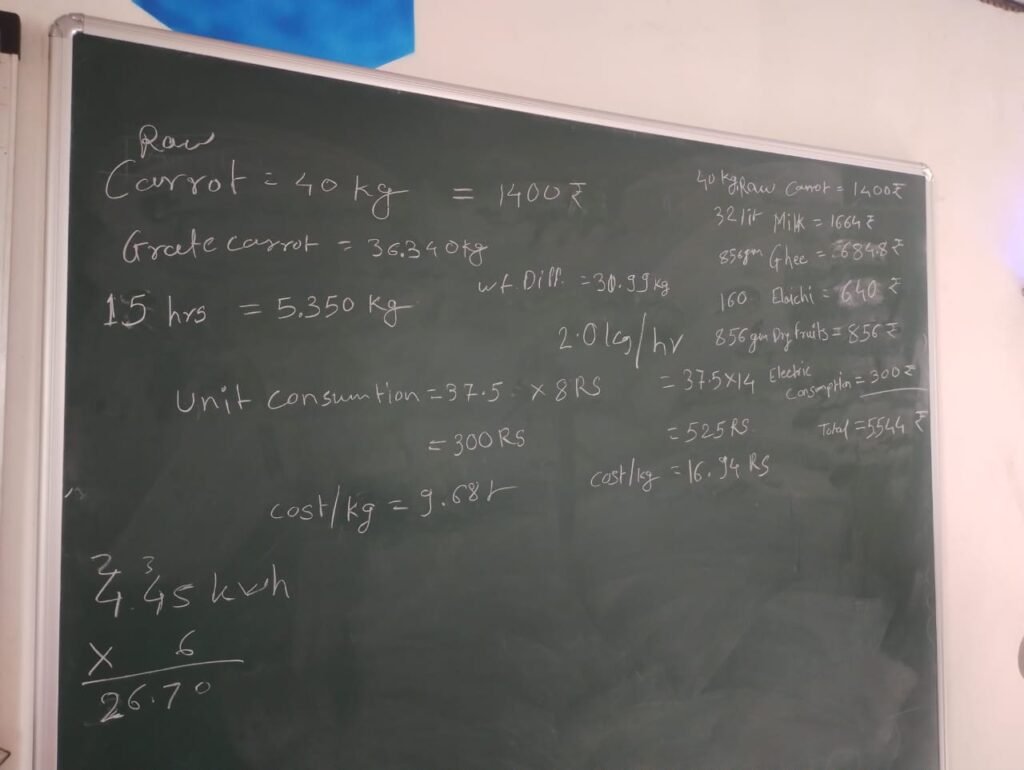 Raw
Carrot = 40 kg = 1400 ₹
Grate carrot = 36.340kg
15 hrs = 5.350 kg
wt Diff. = 30.99 kg
2.0 kg/hr
Unit consumtion = 37.5 × 8 RS
= 300 RS
cost/kg = 9.68
= 37.5×14
= 525 RS
cost/kg = 16.94 RS
40 kg Raw Carrot = 1400₹
32 lit Milk = 1664 ₹
856gm Ghee = 684.8 ₹
160 Elaichi = 640 ₹
856 gm Dry fruits = 856 ₹
Electric
Consumption = 300 ₹
Total = 5544 ₹
2 3
4.45 kwh
× 6
26.70